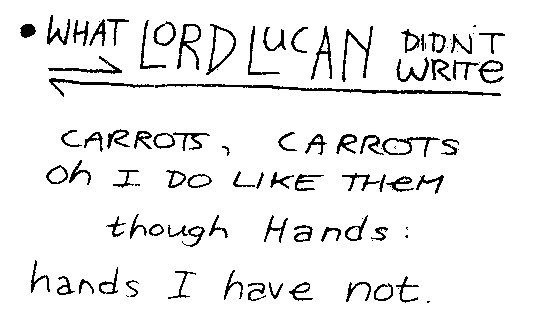 • WHAT LORD LUCAN DIDN'T WRITE
CARROTS, CARROTS
Oh I DO LIKE THEM
though Hands:
hands I have not.